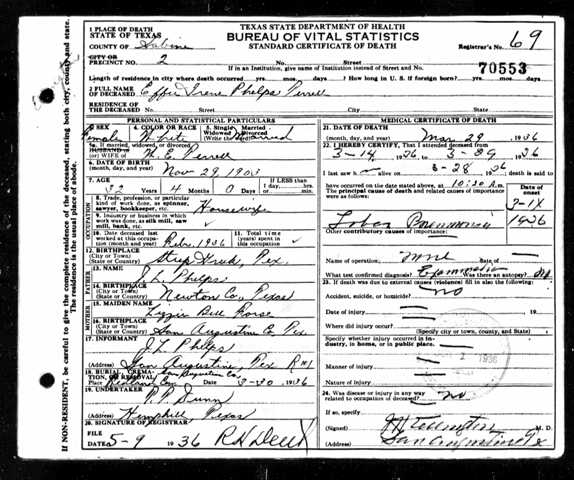 TEXAS STATE DEPARTMENT OF HEALTH
BUREAU OF VITAL STATISTICS
STANDARD CERTIFICATE OF DEATH
1 PLACE OF DEATH
STATE OF TEXAS
COUNTY OF Sabine
CITY OR PRECINCT NO. 2
No. Street
Registrar's No. 69
If in an Institution, give name of Institution instead of Street and No.
70553
Length of residence in city where death occurred yrs. mos. days ? How long in U. S. if foreign born? yrs. mos. days
2 FULL NAME OF DECEASED Effie Irene Phelps Ferrell
RESIDENCE OF THE DECEASED No. Street City State
PERSONAL AND STATISTICAL PARTICULARS
3 SEX 4 COLOR OR RACE 5 Single Married Widowed Divorced
Female White Married
5a If married, widowed or divorced
HUSBAND of (or) WIFE of
6 DATE OF BIRTH (month, day, year) Nov 29, 1903
7 AGE If LESS than 1 day
32 Years 4 Months 0 Days
8 Trade, profession, or particular kind of work done, as spinner, sawyer, bookkeeper, etc. Housewife
9 Industry or business in which work was done, as silk mill, saw mill, bank, etc.
10 Date deceased last worked at this occupation (month and year) Feb. 1936
11 Total time (years) spent in this occupation
12 BIRTHPLACE (City or Town) (State or Country) Tex.
13 NAME J L Phelps
14 BIRTHPLACE (City or Town) (State or Country) Newton Co, Texas
15 MAIDEN NAME Lizzie Bell
16 BIRTHPLACE (City or Town) (State or Country) San Augustine Co Tex
17 INFORMANT J L Phelps
Address San Augustine, Tex
18 BURIAL, CREMATION, OR REMOVAL San Augustine Co
Place Date 3-30 1936
19 UNDERTAKER
Address Hemphill Texas
20 SIGNATURE OF REGISTRAR
FILE DATE 5-9 1936
MEDICAL CERTIFICATE OF DEATH
21 DATE OF DEATH (month, day, year) Mar 29, 1936
22 I HEREBY CERTIFY, That I attended deceased from
3-14, 1936 to 3-29 1936
I last saw alive on 3-28 1936, death is said to
have occurred on the date stated above, at 10:30 A.m.
The principal cause of death and related causes of importance were as follows: Date of onset
Lobar Pneumonia
1936
Other contributory causes of importance:
Name of operation none Date of
What test confirmed diagnosis? Was there an autopsy? No
23 If death was due to external causes (violence) fill in also the following:
Accident, suicide, or homicide? no
Date of injury 19
Where did injury occur?
(Specify city or town, county, and state)
Specify whether injury occurred in industry, in home, or in public place.
Manner of injury
Nature of injury
1936
24 Was disease or injury in any way related to occupation of deceased? no
If so, specify
(Signed) M. D.
(Address) San Augustine
OCCUPATION
FATHER
MOTHER
If NON-RESIDENT, be careful to give the complete residence of the deceased, stating both city, county and state.
The residence is the usual place of abode.